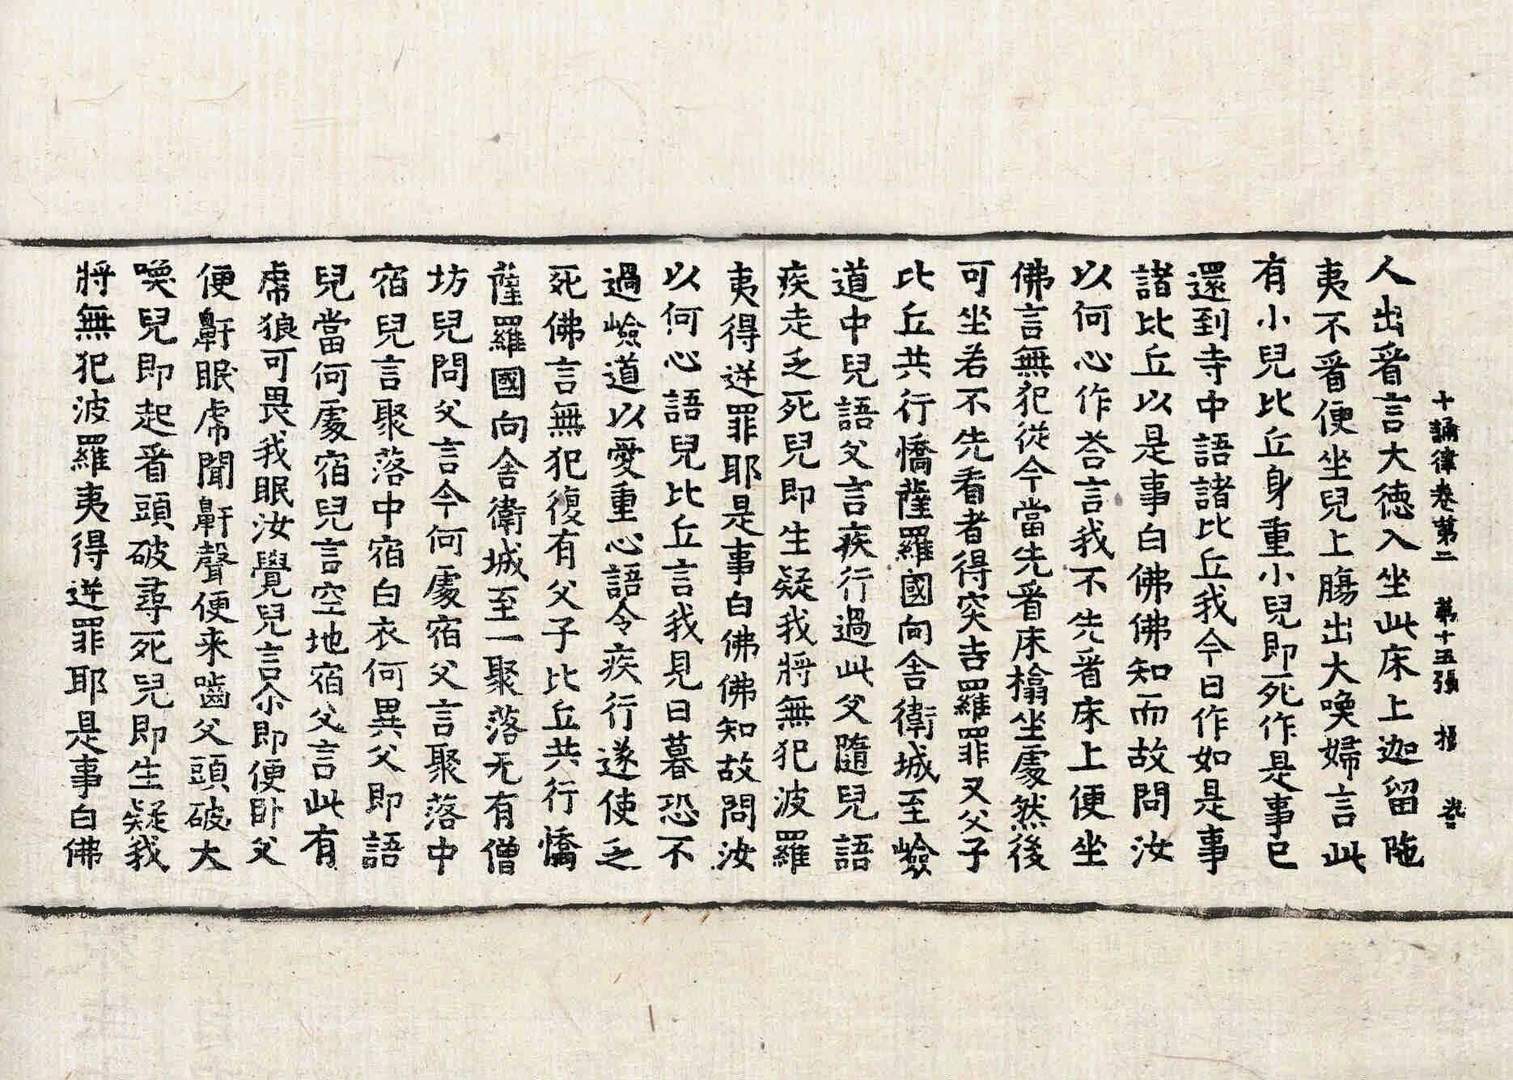 十誦律卷第二　第十五張
人出看言大德入坐此床上迦留陁
夷不看便坐兒上膓出大喚婦言此
有小兒比丘身重小兒即死作是事已
還到寺中語諸比丘我今日作如是事
諸比丘以是事白佛佛知而故問汝
以何心作荅言我不先看床上便坐
佛言無犯從今當先看床榻坐處然後
可坐若不先看者得突吉羅罪又父子
比丘共行憍薩羅國向舍衛城至嶮
道中兒語父言疾行過此父隨兒語
疾走乏死兒即生疑我將無犯波羅
夷得逆罪耶是事白佛佛知故問汝
以何心語兒比丘言我見日暮恐不
過嶮道以愛重心語令疾行遂使乏
死佛言無犯復有父子比丘共行憍
薩羅國向舍衛城至一聚落无有僧
坊兒問父言今何處宿父言聚落中
宿兒言聚落中宿白衣何異父即語
兒當何處宿兒言空地宿父言此有
虎狼可畏我眠汝覺兒言尒即便卧父
便鼾眠虎聞鼾聲便来嚙父頭破大
喚兒即起看頭破尋死兒即生疑我
將無犯波羅夷得逆罪耶是事白佛